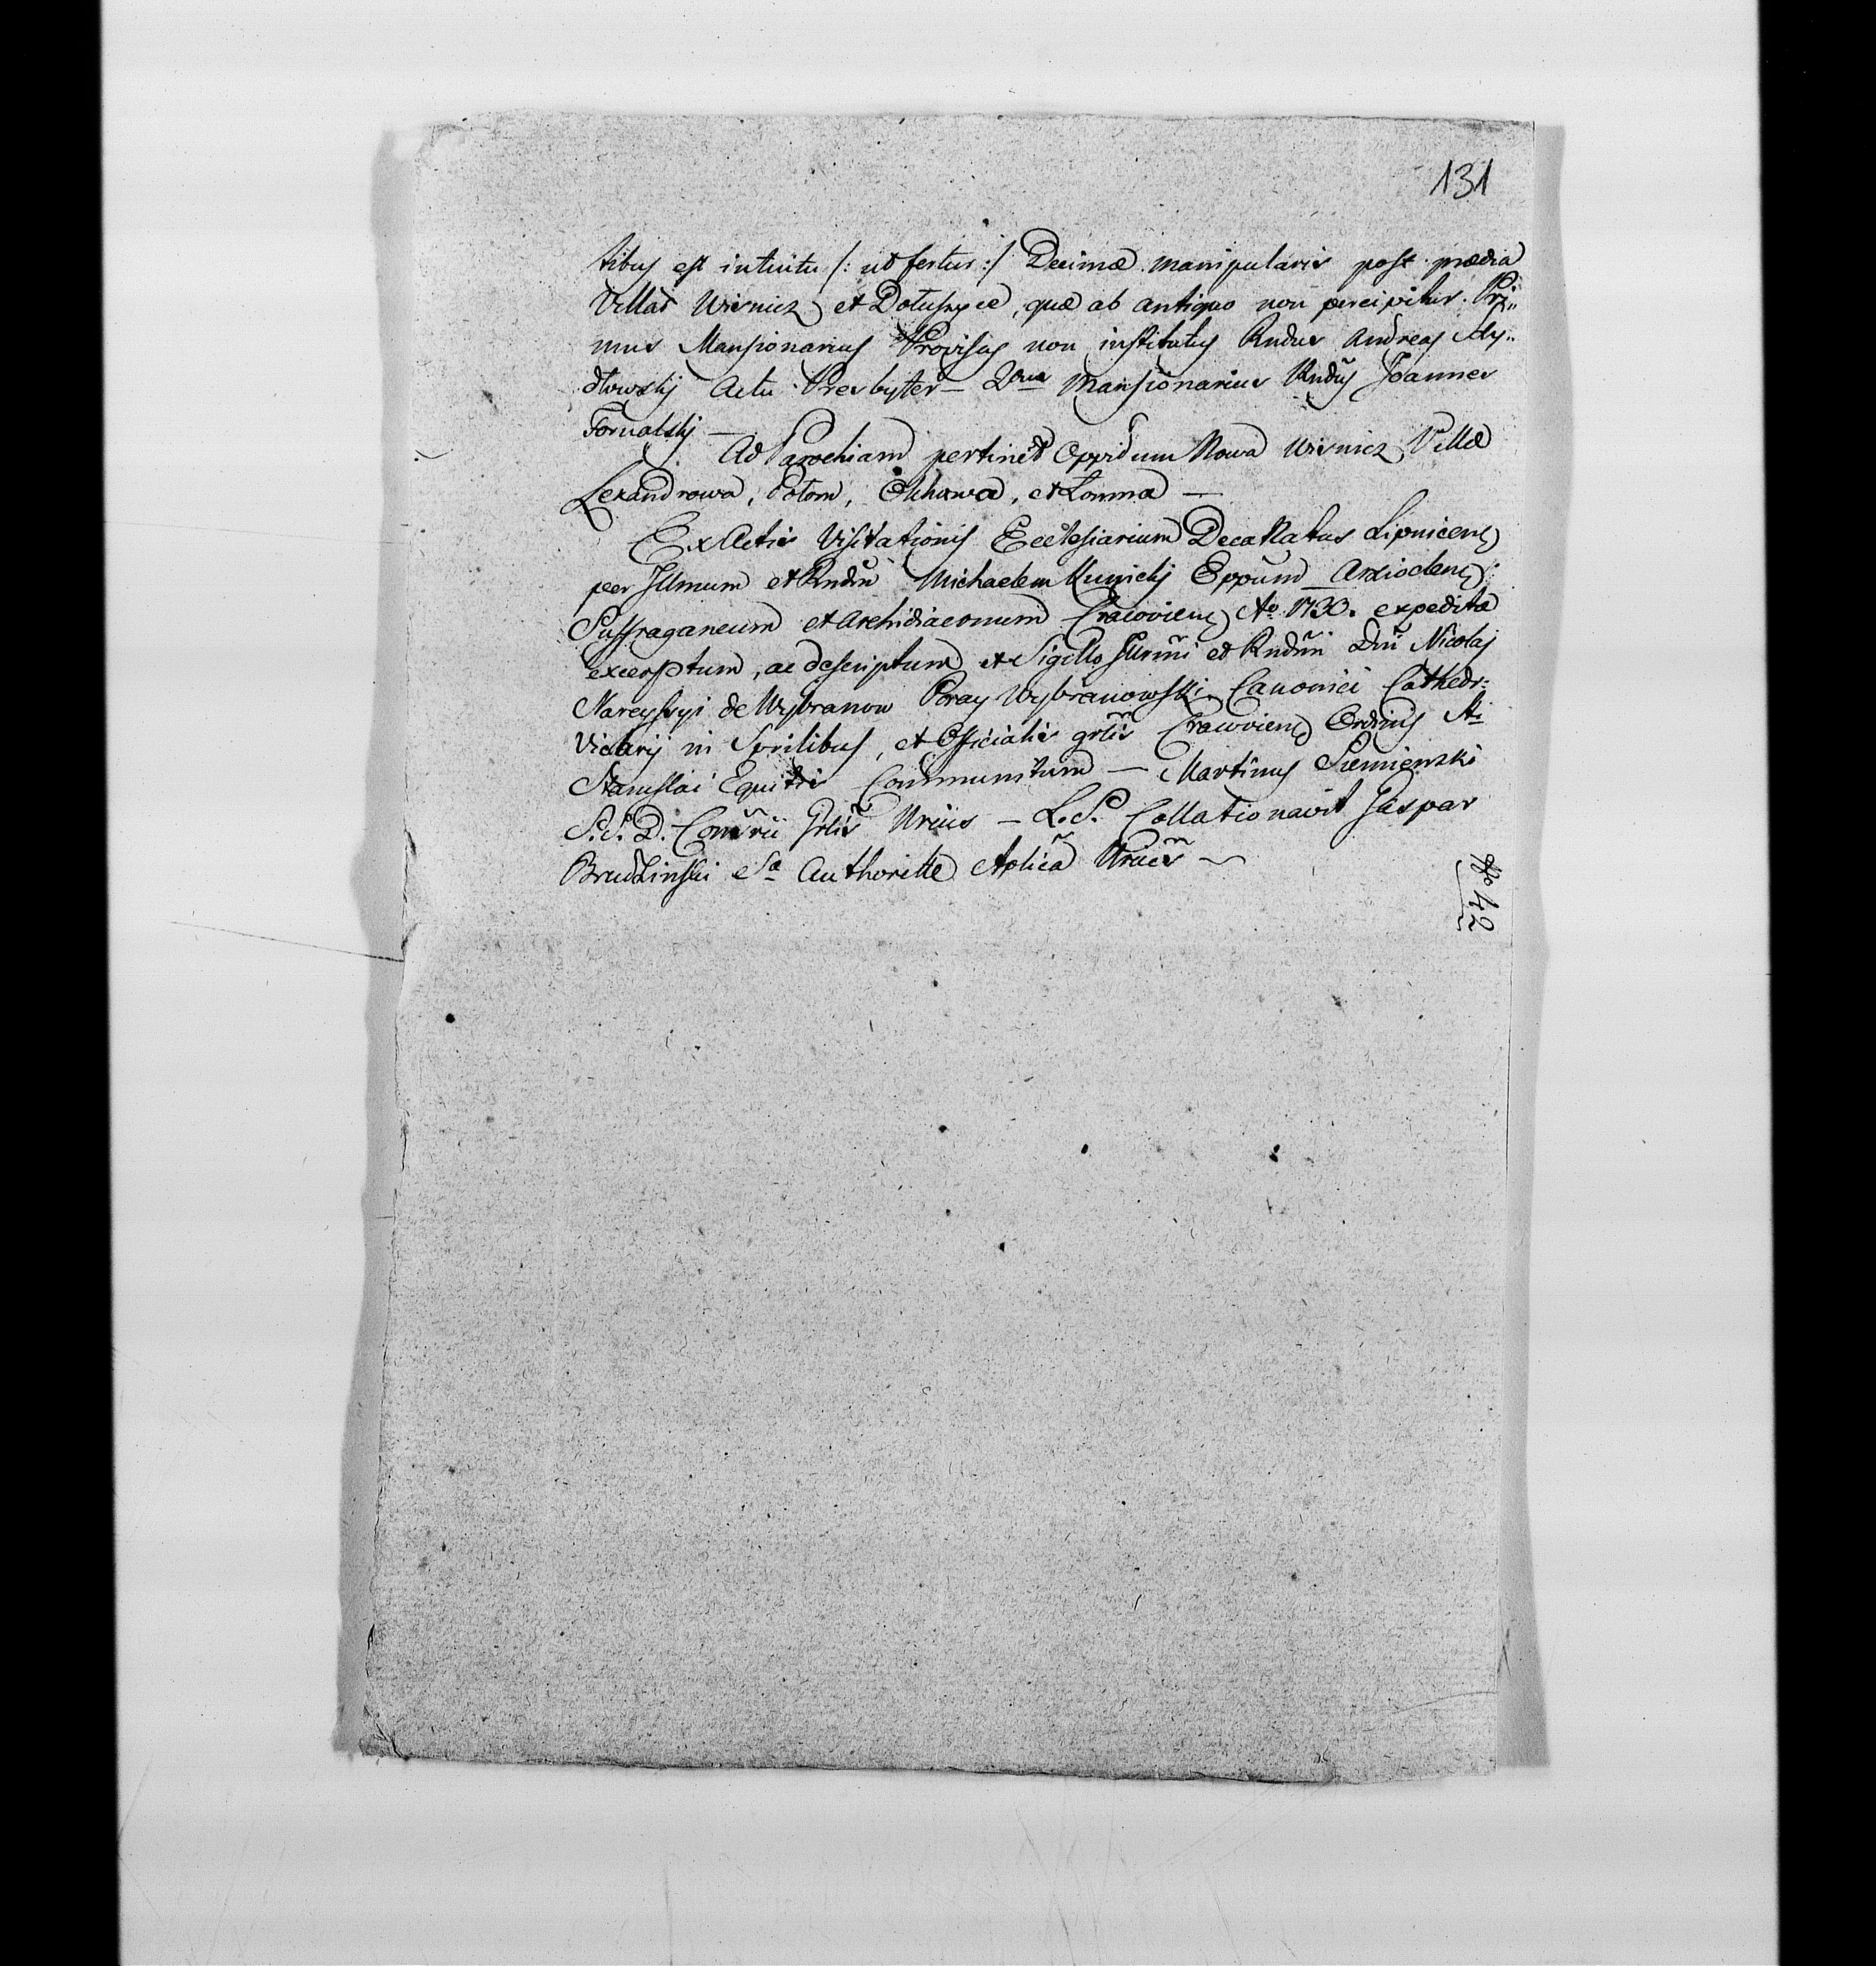 131
tibus est intuitu /: ut fertur :/ Decimæ manipularis post prædia
Villar Wisnicz et Dołuszyce, quæ ab antiquo non percipitur. Pri„
mus Mansionarius Provisus non institutus Rndus Andreas
dłowskij Actu Presbyter — 2dus Mansionarius Rndus Joannes
Fornalskij —
Ad Parochiam pertinet Oppidum Nowa Wisnicz, Villæ
Lexandrowa, Połom, Olchawa, et Łomna —
Ex Actis Visitationis Ecclesiarum Decanatus Lipnicens
per Illmum et Rndm Michaelem Kunickij Eppum Arsiocens:
Suffraganeum et Archidiaconum Cracoviens Ao 1730. expeditæ
excerptum, ac descriptum et Sigillo Illrmi et Rndmi Dni Nicolaj
Nareyssyi de Wybranow Poray Wybranowski Canonici Cathedr:
Vicarij in Sprilibus, et Officialis grlis Cracoviens Ordinis Sti
Stanislai Equitis Communitum — Martinus Siemienski
S. S. D. Consrii Grlis Nrius — L. S. Collationavit Gaspar
Brudzinski Sa Authoritte Aplica
No 42